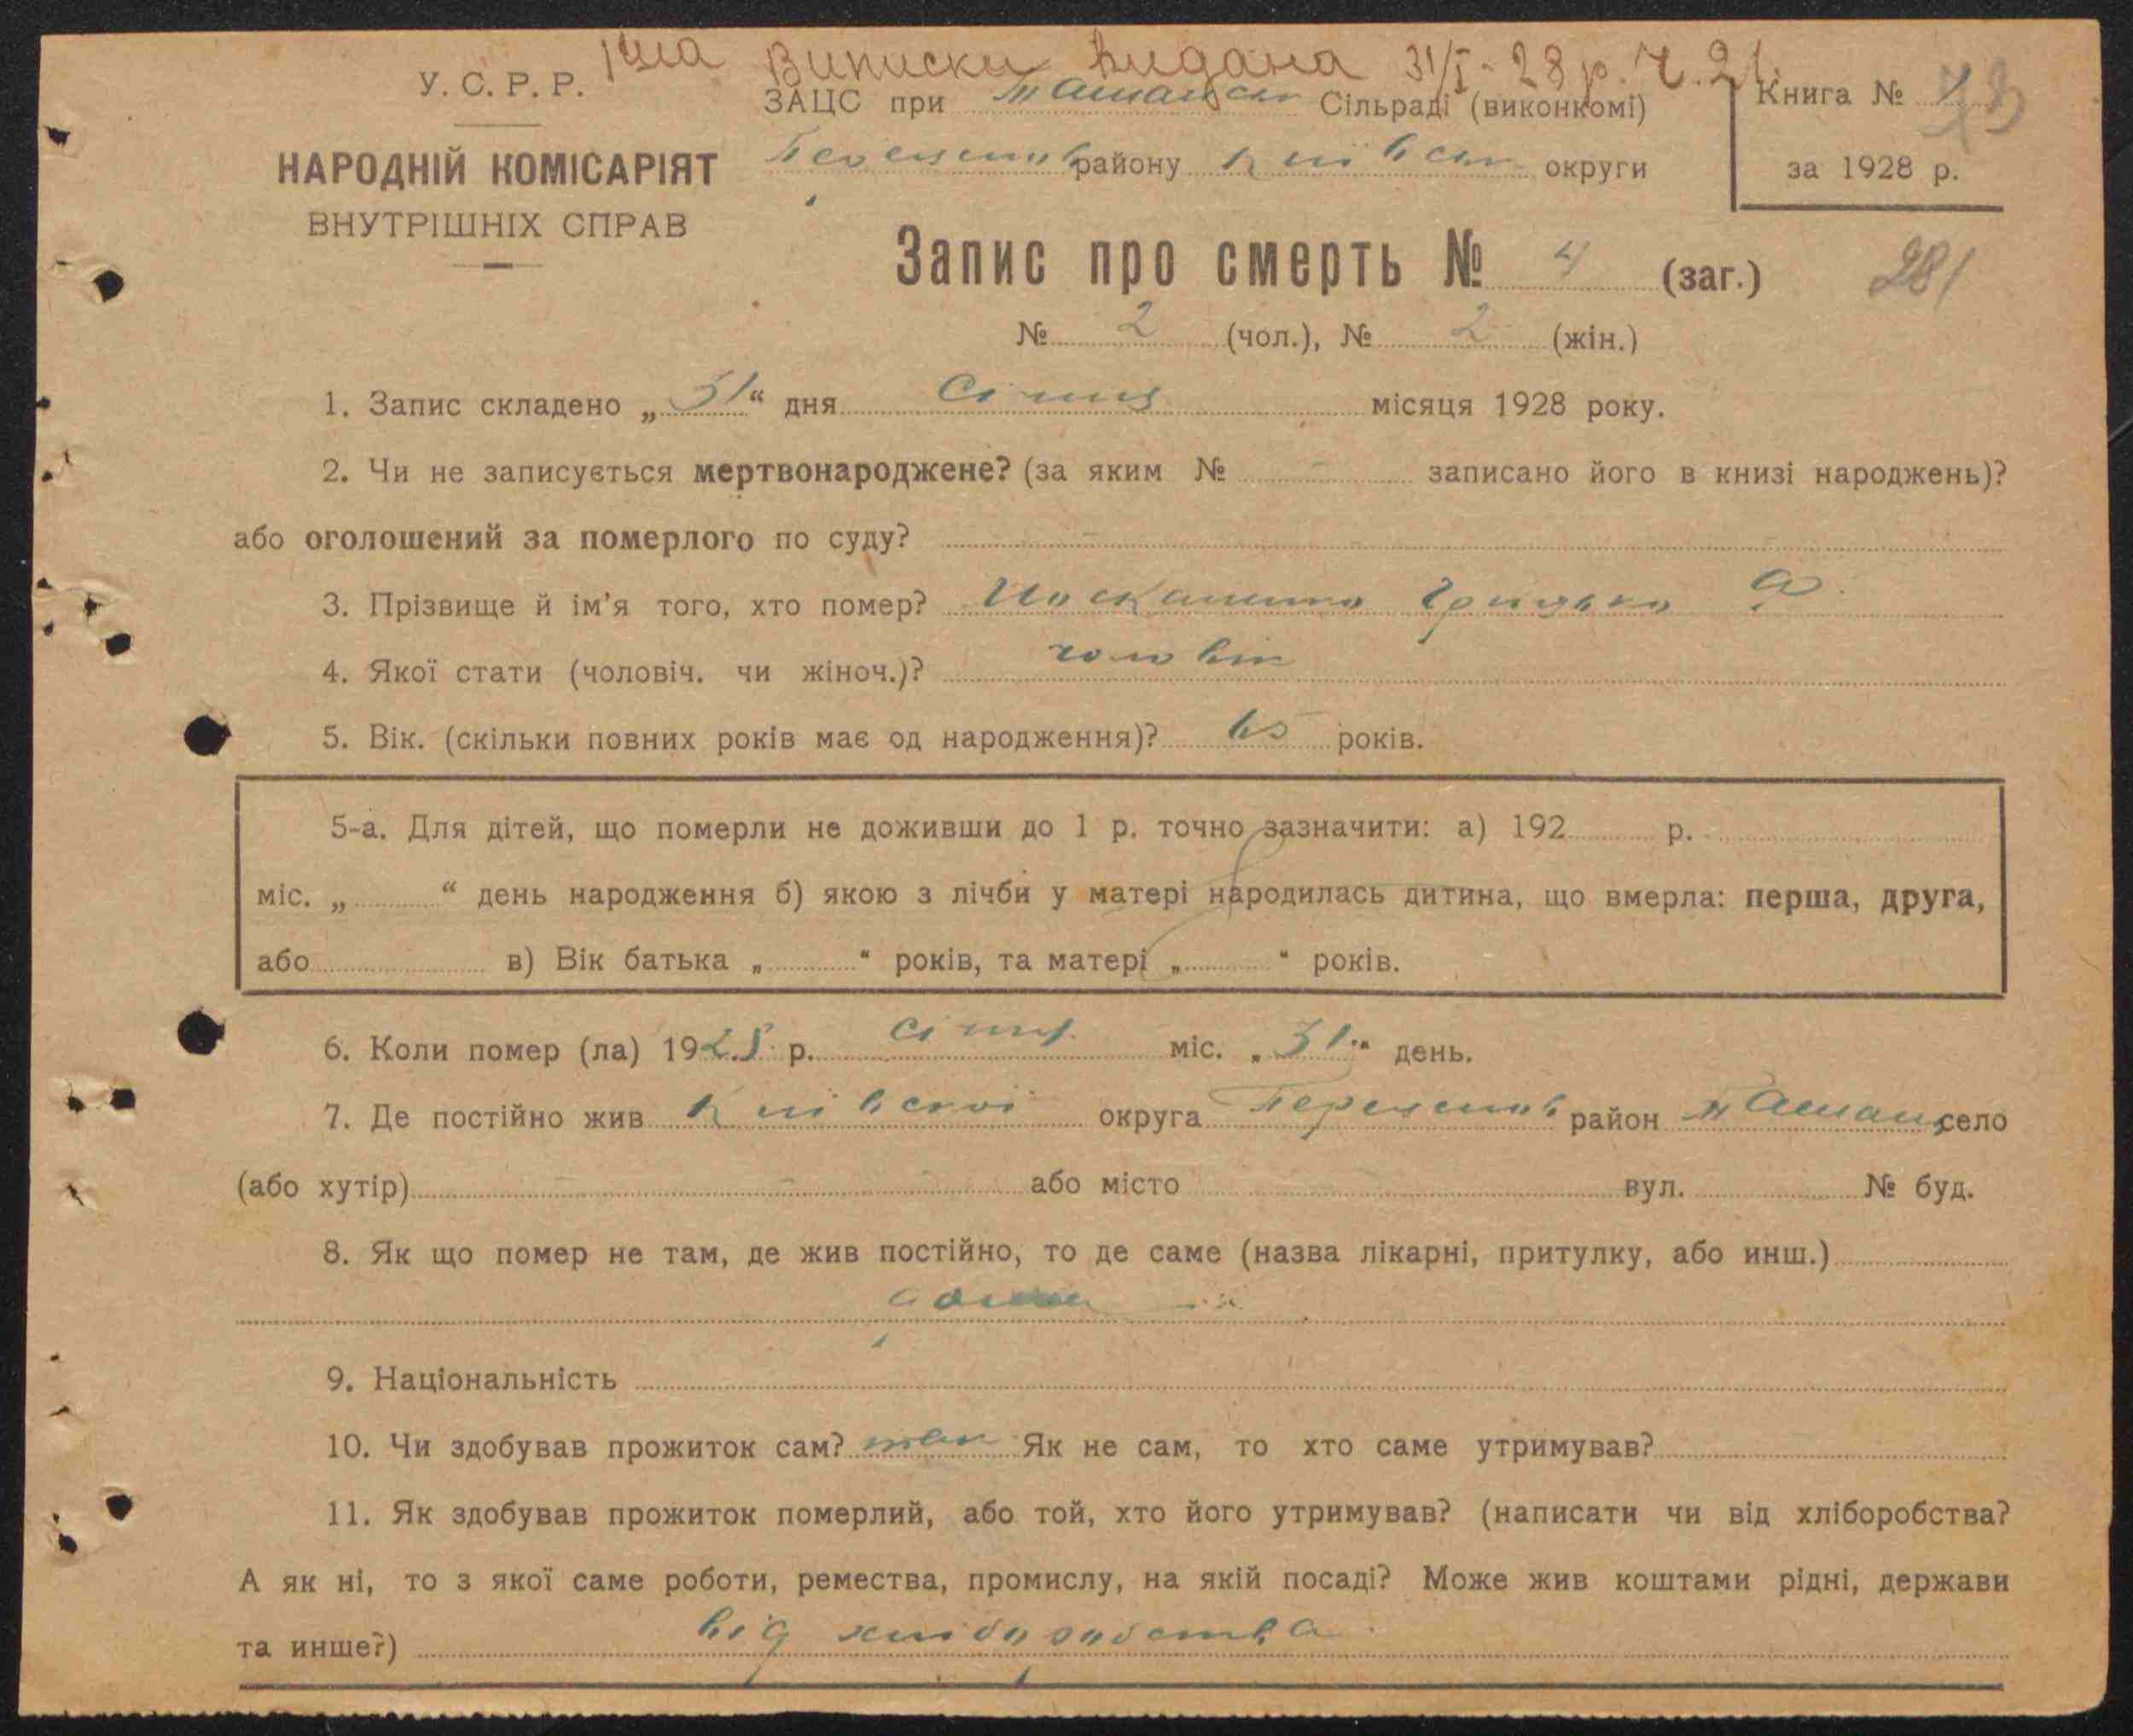 Виписка видана 31/I-28 р. Ч. 21.
У. С. Р. Р.
НАРОДНІЙ КОМІСАРІЯТ
ВНУТРІШНІХ СПРАВ
ЗАЦС при Ташанск Сільраді (виконкомі)
району Київськ округи
Книга №
за 1928 р.
Запис про смерть № 4 (заг.) 281
№ 2 (чол.), № 2 (жін.)
1. Запис складено „31“ дня Січня місяця 1928 року.
2. Чи не записується мертвонароджене? (за яким № записано його в книзі народжень)?
або оголошений за померлого по суду?
3. Прізвище й ім'я того, хто помер? Грицько
4. Якої стати (чоловіч. чи жіноч.)? чоловік
5. Вік. (скільки повних років має од народження)? 65 років.
5-а. Для дітей, що померли не доживши до 1 р. точно зазначити: а) 192 р.
міс. „ “ день народження б) якою з лічби у матері народилась дитина, що вмерла: перша, друга,
або в) Вік батька „ “ років, та матері „ “ років.
6. Коли помер (ла) 1928 р. січня міс. „31“ день.
7. Де постійно жив Київскої округа район Ташань село
(або хутір) або місто вул. № буд.
8. Як що помер не там, де жив постійно, то де саме (назва лікарні, притулку, або инш.)
дома
9. Національність
10. Чи здобував прожиток сам? так Як не сам, то хто саме утримував?
11. Як здобував прожиток померлий, або той, хто його утримував? (написати чи від хліборобства?
А як ні, то з якої саме роботи, ремества, промислу, на якій посаді? Може жив коштами рідні, держави
та инше?) від хліборобства